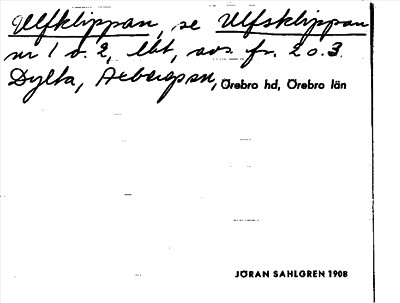 Ulfklippan, se Ulfsklippan
nr 1 o. 2, lbt, avs. fr. 2 o. 3.
Dylta, Axbergssn, Örebro hd, Örebro län
JÖRAN SAHLGREN 1908